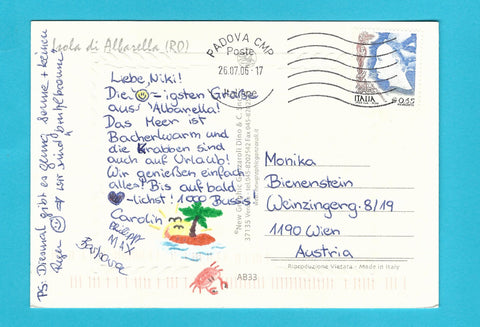 Isola di Albarella (RO)
PADOVA CMP
Poste
26.07.06-17
ITALIA
€ 0,52
Liebe Niki!
Die ☺=igsten Grüße
aus Albarella!
Das Meer ist
Bacherlwarm und
die Krabben sind
auch auf Urlaub!
Wir genießen einfach
alles! Bis auf bald
♥-lichst! 1000 Bussis!
Carolin
Philipp
MAX
Barbara
PS: Diesmal gibt es genug Sonne + keinen
Regen ☺ → wir sind
Monika
Bienenstein
Weinzingerg. 8/19
1190 Wien
Austria
AB33
Riproduzione Vietata - Made in Italy